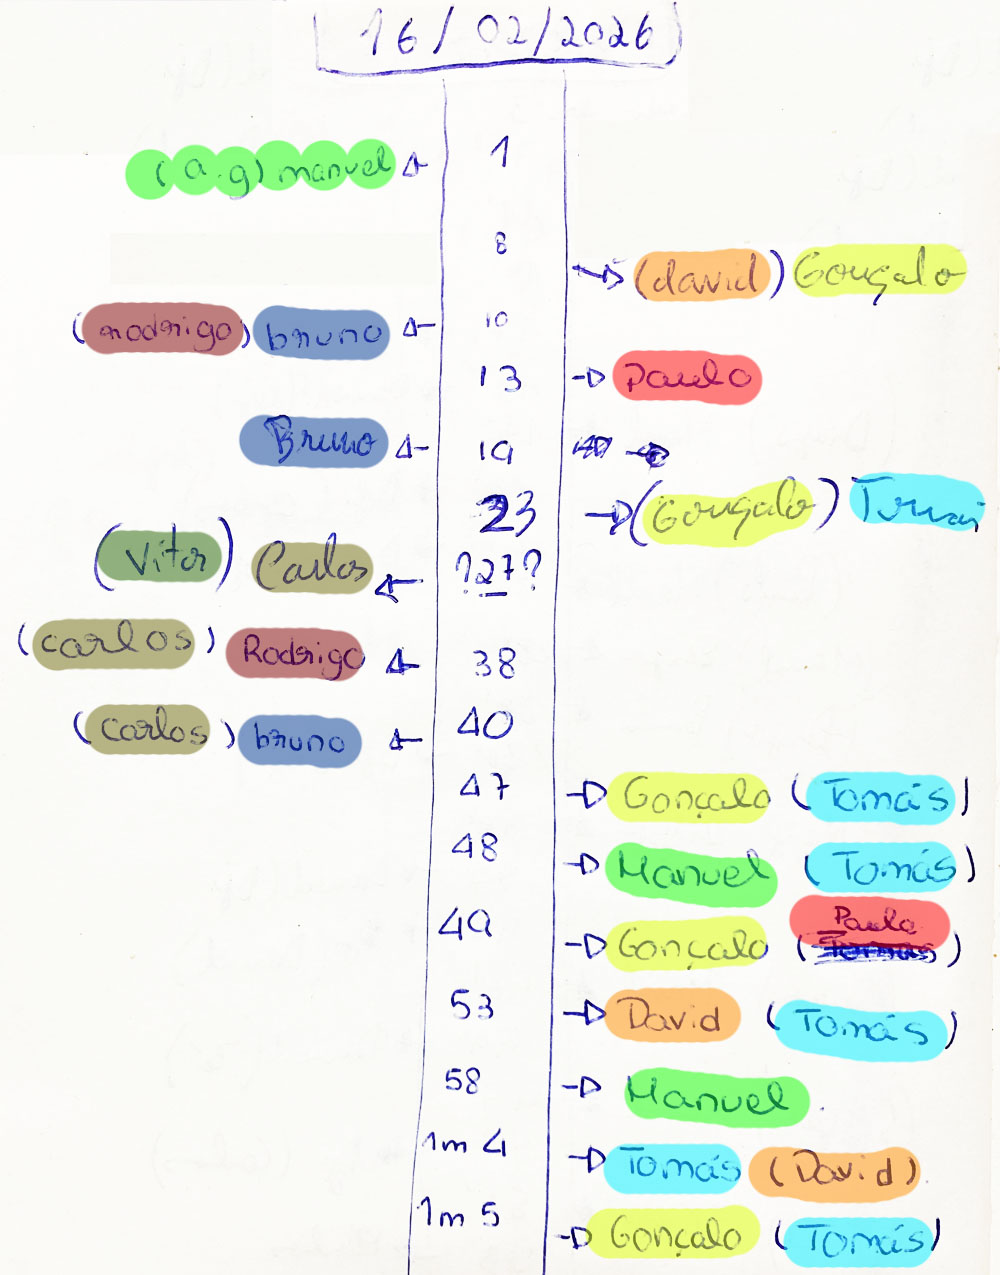 16/02/2026
(a.g) manuel 1
8 (david) Gonçalo
(rodrigo) bruno 10
13 Paulo
Bruno 19
23 (Gonçalo)
(Vítor) Carlos ?27?
(carlos) Rodrigo 38
(carlos) bruno 40
47 Gonçalo (Tomás)
48 Manuel (Tomás)
49 Gonçalo (Paulo Tomás)
53 David (Tomás)
58 Manuel.
1m 4 Tomás (David)
1m 5 Gonçalo (Tomás)